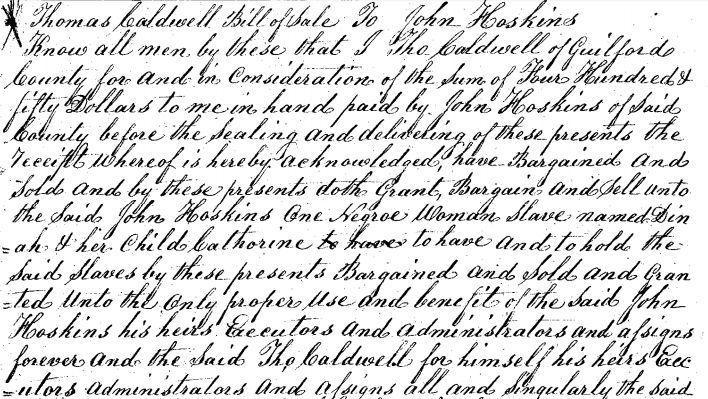 Thomas Caldwell Bill of Sale To John Hoskins
Know all men by these that I Tho Caldwell of Guilford
County for and in Consideration of the Sum of Four Hundred &
fifty Dollars to me in hand paid by John Hoskins of Said
County before the Sealing and delivering of these presents the
receipt whereof is hereby acknowledged, have Bargained and
Sold and by these presents doth Grant, Bargain and Sell unto
the Said John Hoskins One Negroe Woman Slave named Din
=ah & her Child Cathorine to have to have and to hold the
Said Slaves by these presents Bargained and Sold and Gran
=ted unto the Only proper Use and benefit of the Said John
Hoskins his heirs Executors and administrators and assigns
forever and the Said Tho Caldwell for himself his heirs Exec
=utors administrators and assigns all and Singularly the Said